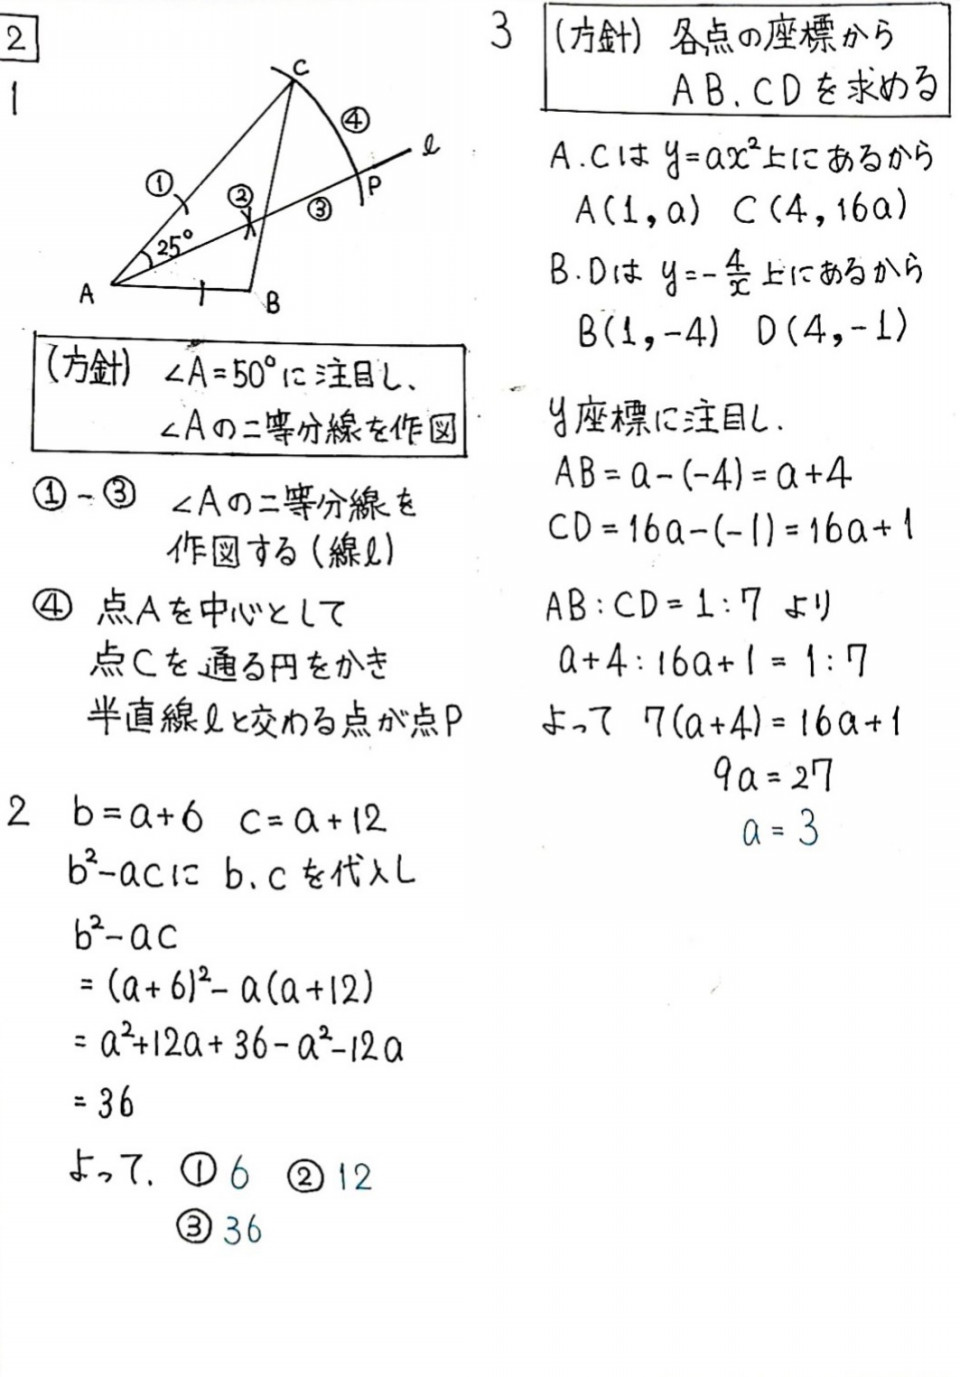 2
1
C
④
ℓ
①
②
P
③
25°
A
B
(方針) ∠A=50°に注目し、
∠Aの二等分線を作図
①-③ ∠Aの二等分線を
作図する(線ℓ)
④ 点Aを中心として
点Cを通る円をかき
半直線ℓと交わる点が点P
2 b=a+6 c=a+12
b²-acに b、cを代入し
b²-ac
=(a+6)²-a(a+12)
=a²+12a+36-a²-12a
=36
よって、①6 ②12
③36
3 (方針) 各点の座標から
AB、CDを求める
A.Cは y=ax²上にあるから
A(1,a) C(4,16a)
B.Dは y=-4/x上にあるから
B(1,-4) D(4,-1)
y座標に注目し、
AB=a-(-4)=a+4
CD=16a-(-1)=16a+1
AB:CD=1:7 より
a+4:16a+1=1:7
よって 7(a+4)=16a+1
9a=27
a=3